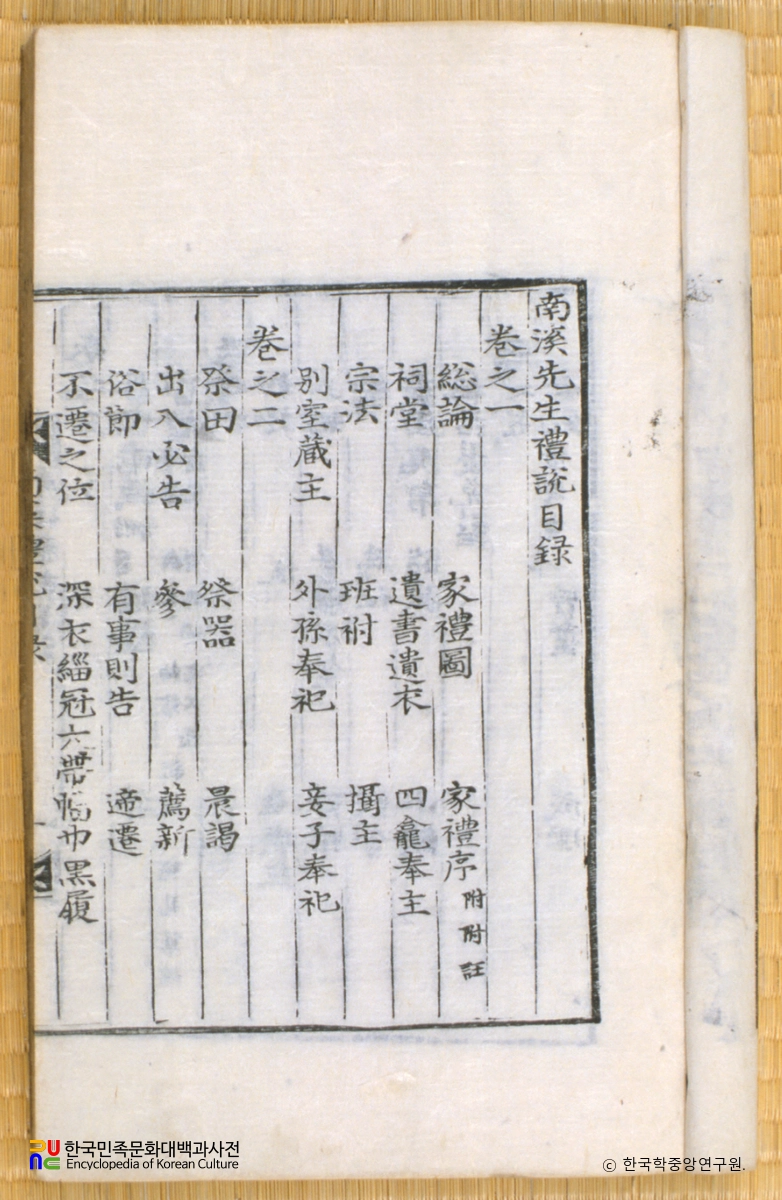 南溪先生禮說目錄
卷之一
総論 家禮圖 家禮序 附附註
祠堂 遺書遺衣 四龕奉主
宗法 班祔 攝主
別室蔵主 外孫奉祀 妾子奉祀
卷之二
祭田 祭器 晨謁
出入必告 參 薦新
俗節 有事則告 遞遷
不遷之位 深衣緇冠大帶幅巾黑履
한국민족문화대백과사전
Encyclopedia of Korean Culture
ⓒ 한국학중앙연구원.